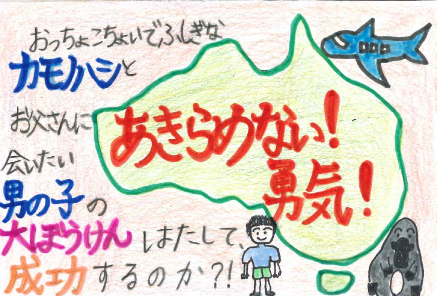 おっちょこちょいでふしぎな
カモノハシと
お父さんに
会いたい
男の子の
大ぼうけん
はたして、
成功するのか?!
あきらめない!
勇気!